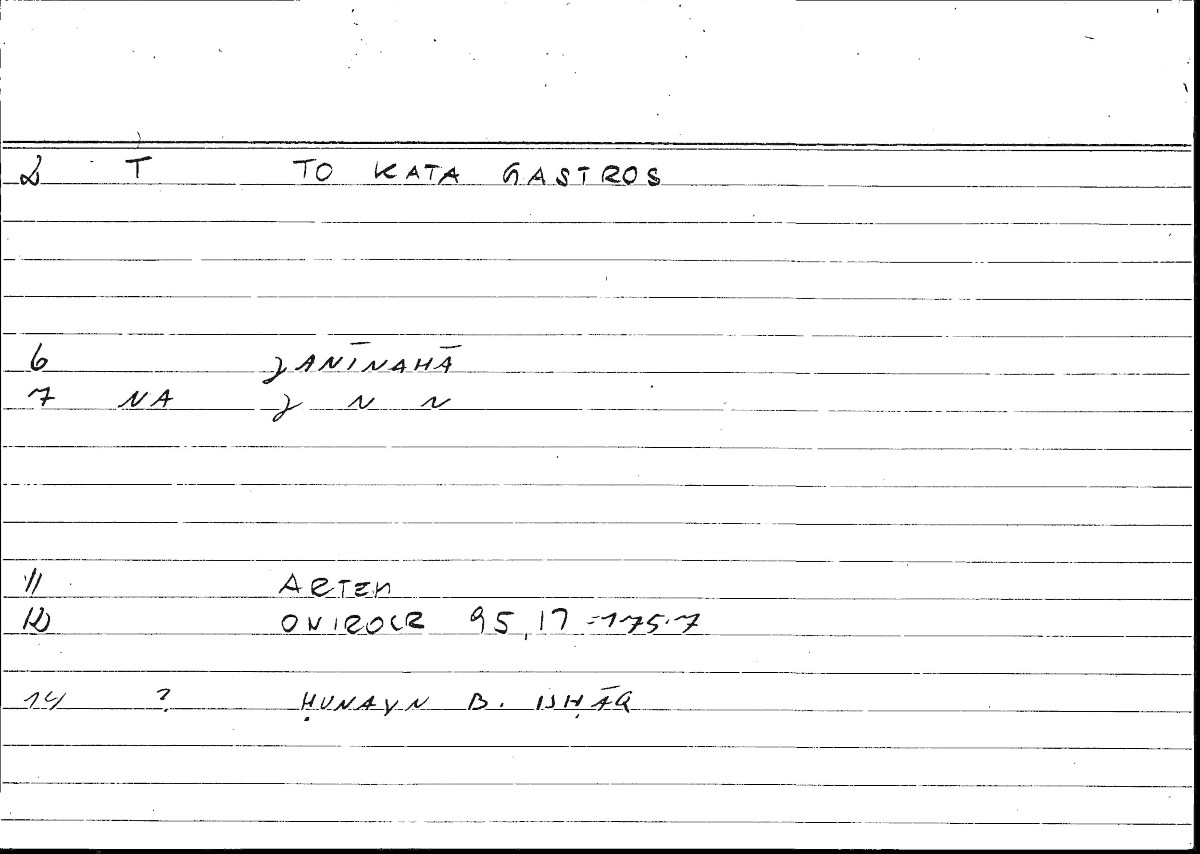 2 T TO KATA GASTROS
6 JANĪNAHĀ
7 NA J N N
11 ARTEM
12 ONIROCR 95,17 = 175.7
14 ? ḤUNAYN B. ISḤĀQ